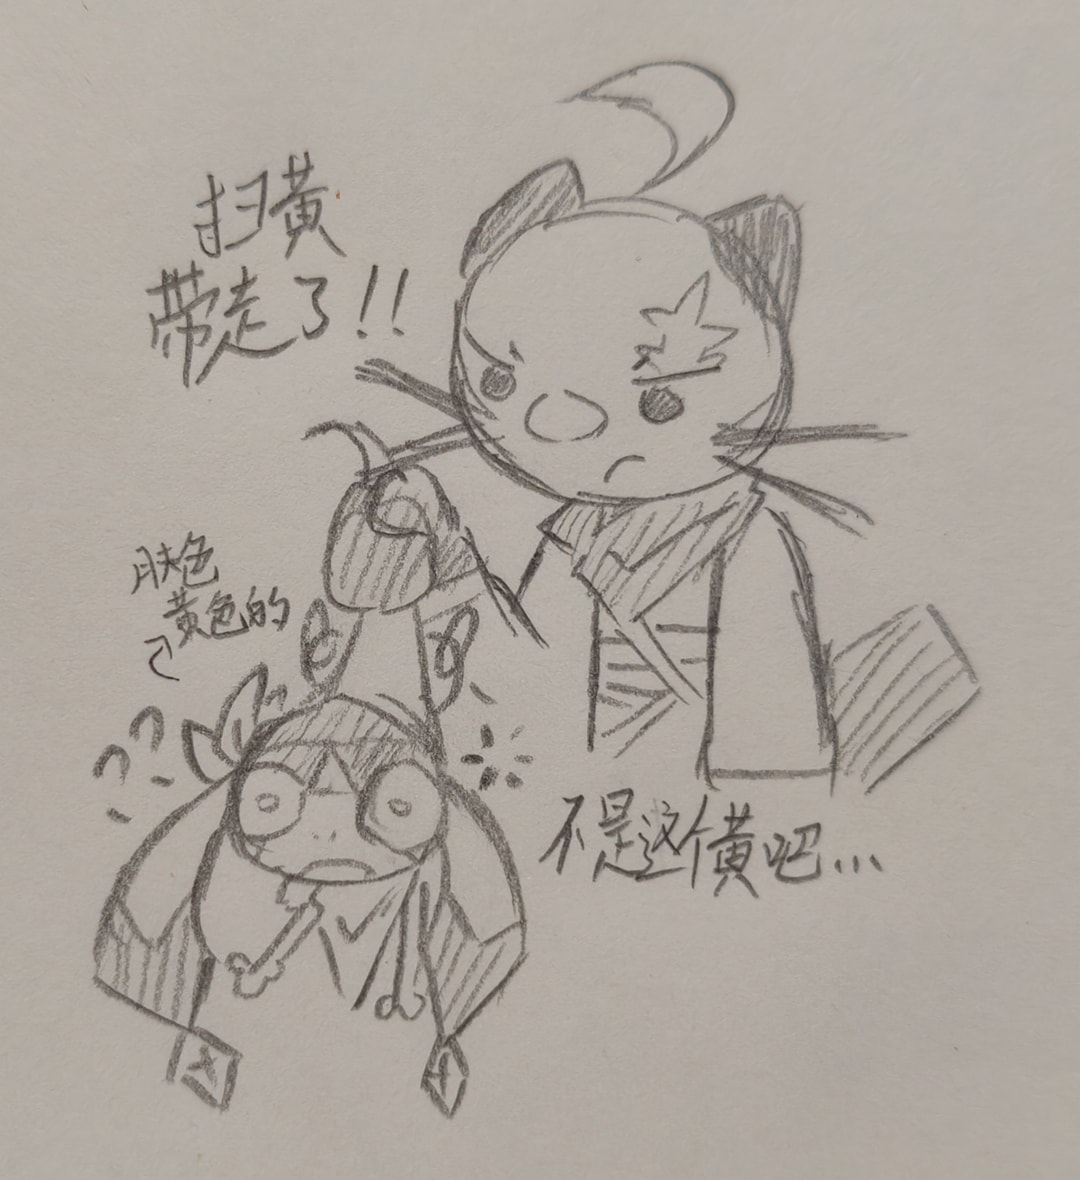 扫黄
带走了!!
肤色
黄色的
??
不是这个黄吧...